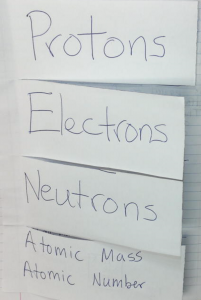 Protons
Electrons
Neutrons
Atomic Mass
Atomic Number